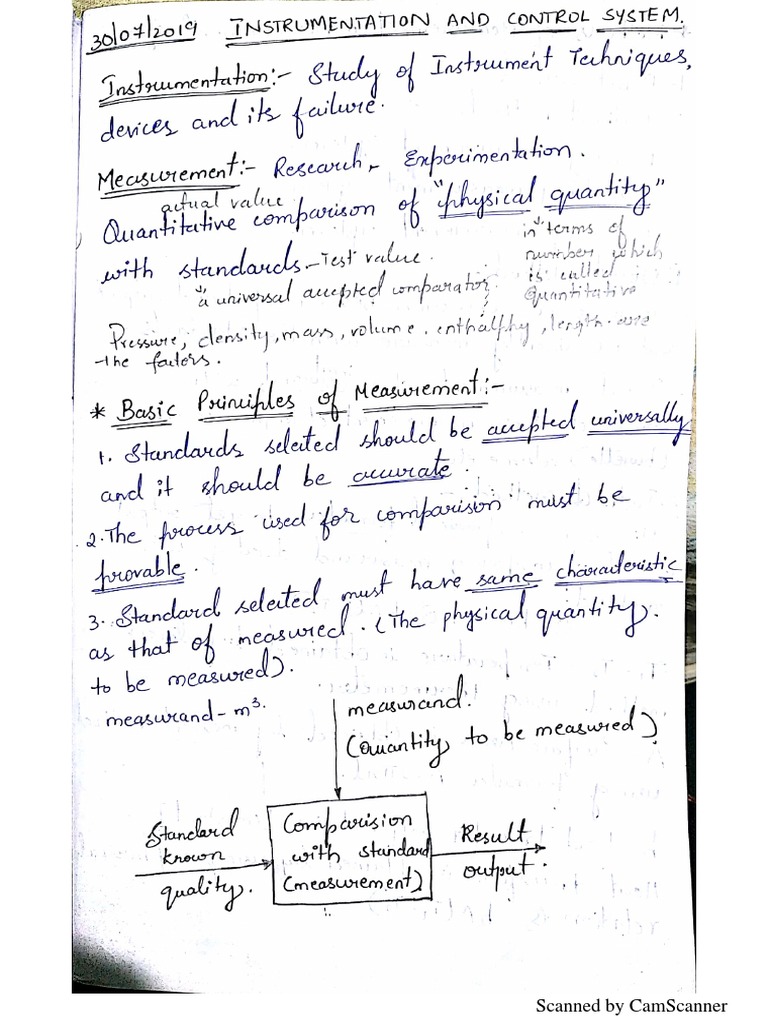 30/07/2019 INSTRUMENTATION AND CONTROL SYSTEM.
Instrumentation:- Study of Instrument Techniques,
devices and its failure.
Measurement:- Research, Experimentation.
actual value
Quantitative comparison of "physical quantity"
with standards. - Test value.
in terms of
number which
is called
Quantitative
a universal accepted comparator.
Pressure, density, mass, volume, enthalphy, length. are
the factors.
* Basic Principles of Measurement:-
1. Standards selected should be accepted universally
and it should be accurate.
2. The process used for comparision must be
provable.
3. Standard selected must have same characteristic
as that of measured. (The physical quantity.
to be measured).
measurand - m³.
measurand.
(Quantity to be measured).
Standard
known
quality.
Comparision
with standard
(measurement)
Result
output.
Scanned by CamScanner